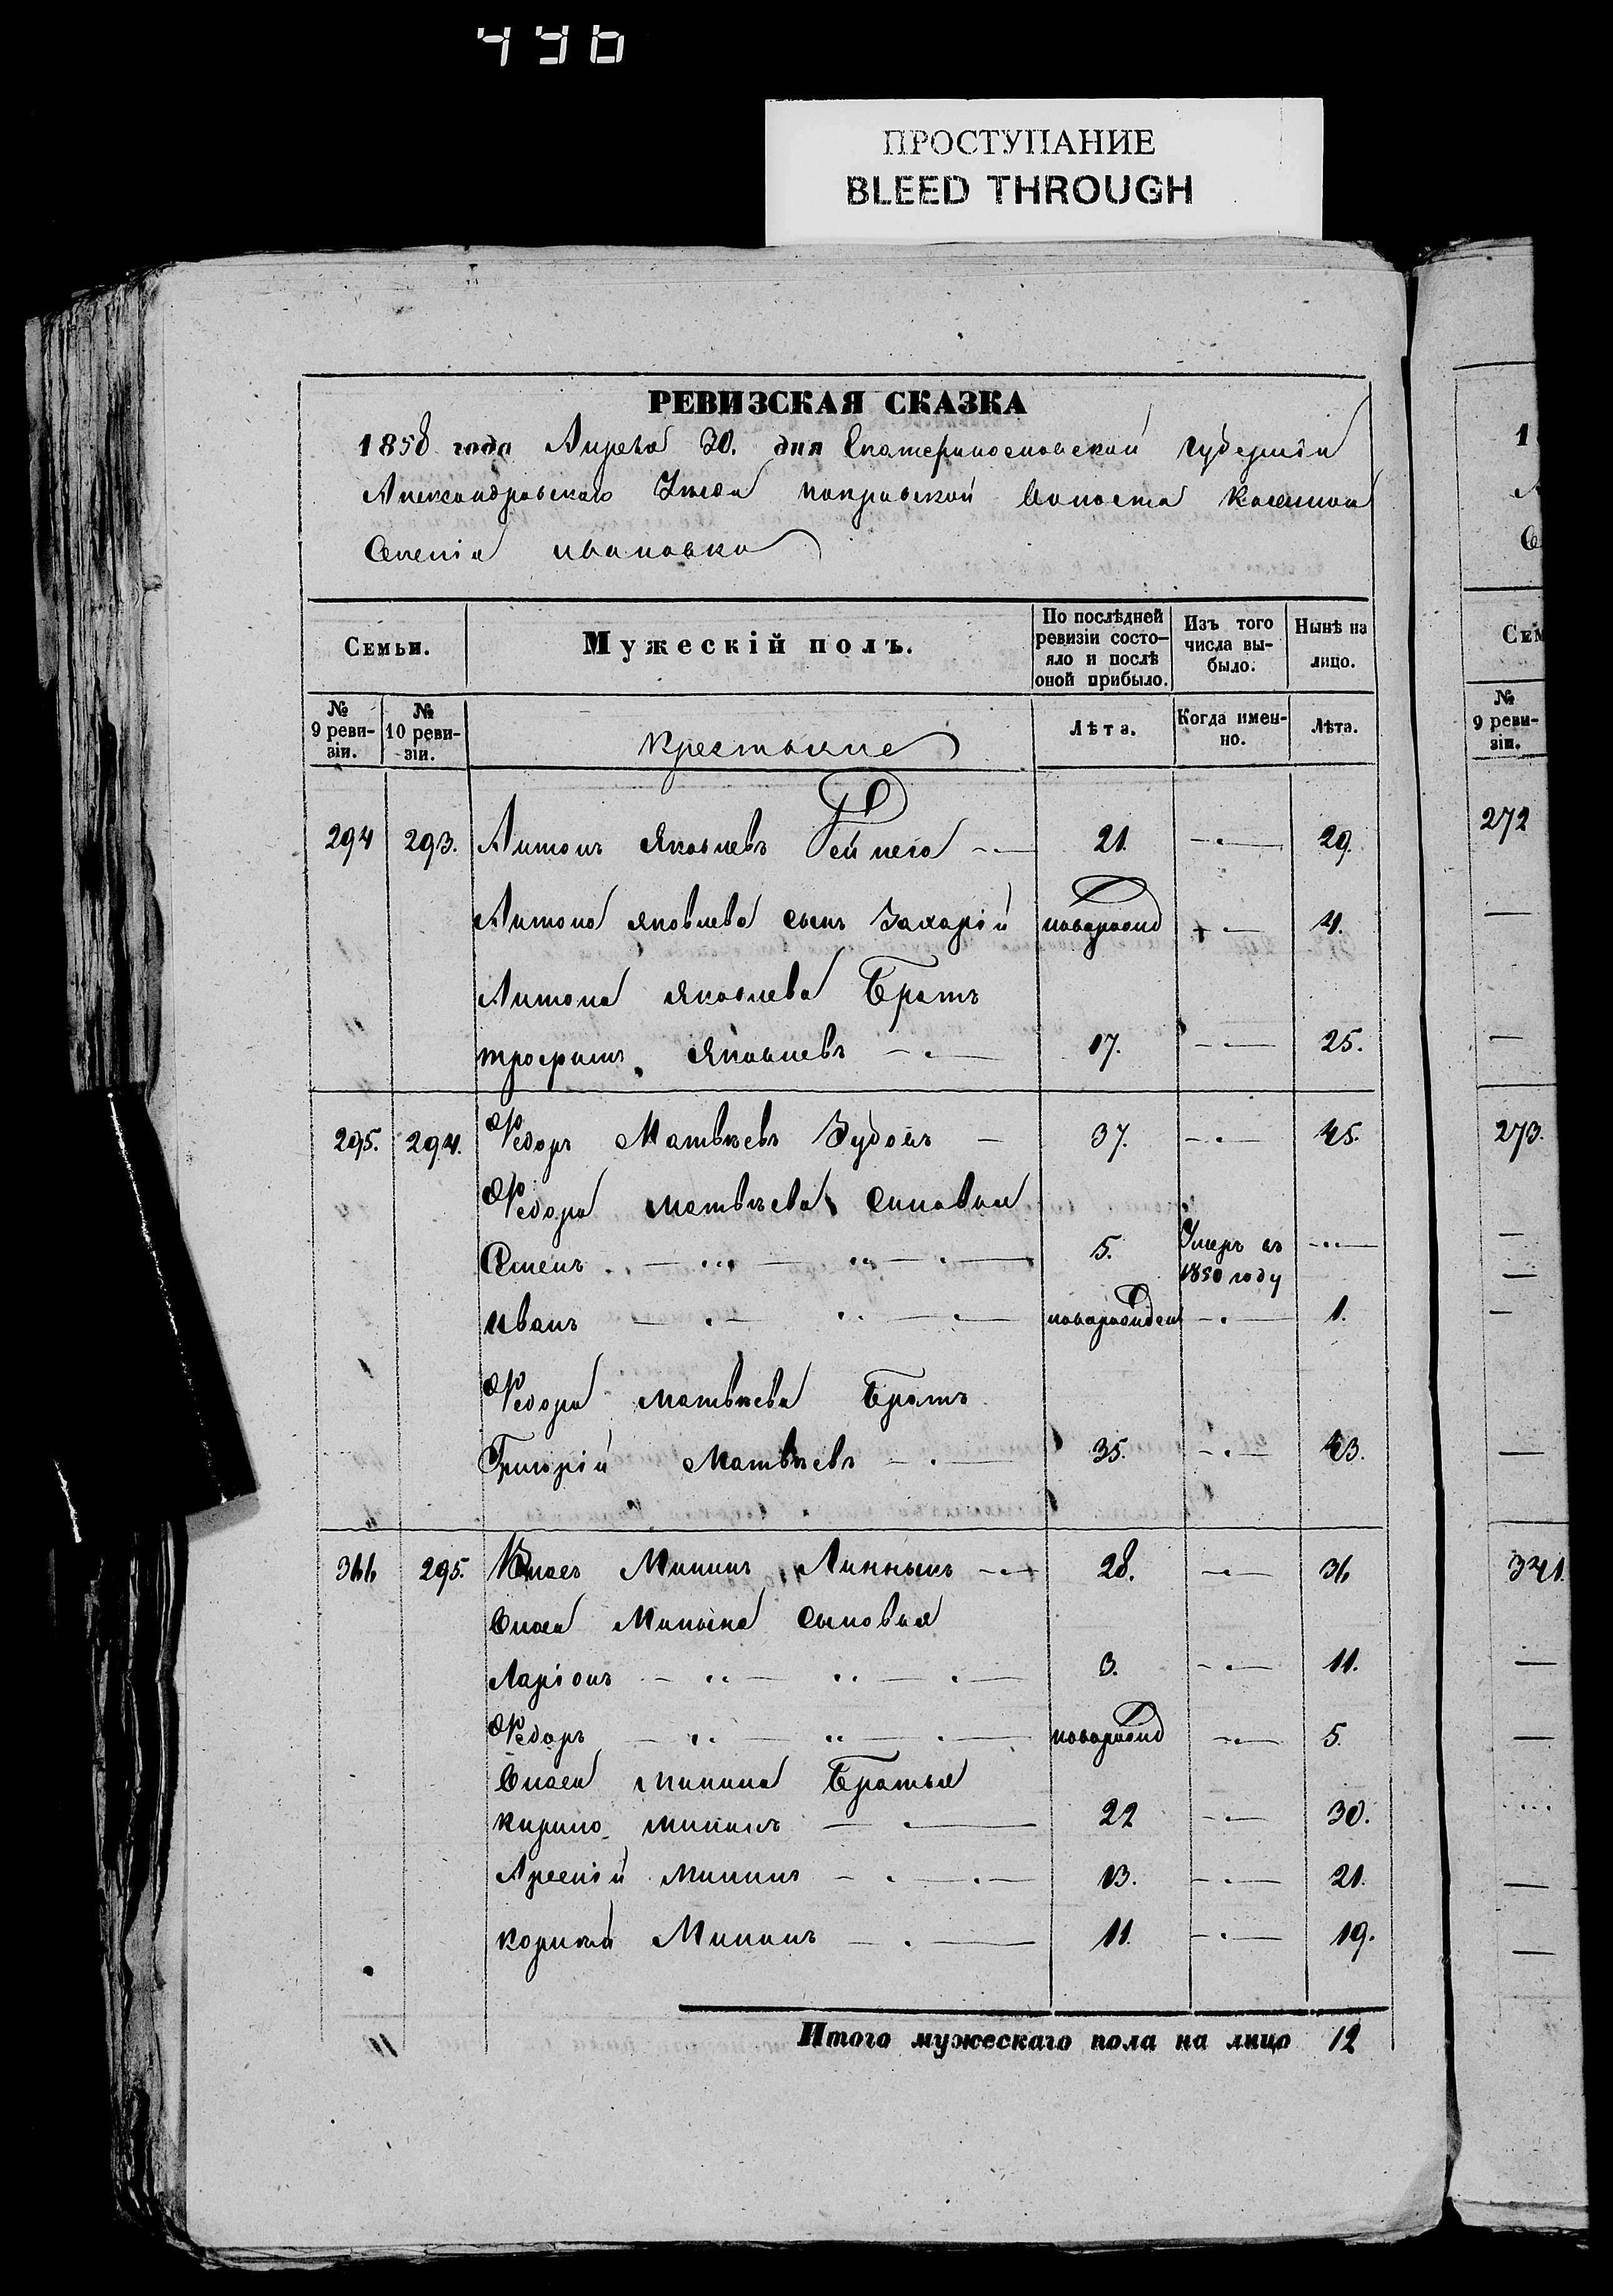 436
ПРОСТУПАНИЕ
BLEED THROUGH
РЕВИЗСКАЯ СКАЗКА
1858 года Апреля 30. дня Екатеринославской Губернiи
Александровскаго Уезда покровской Волости Казенна
Селенiя ивановка
Семьи.
Мужескiй полъ.
По послѣдней ревизiи состо-яло и послѣ оной прибыло.
Изъ того числа вы-было.
Нынѣ на лицо.
№ 9 реви-зiи.
№ 10 реви-зiи.
крестьяне
Лѣта.
Когда имен-но.
Лѣта.
294 293. Антонъ Яковлевъ 21. 29.
Антона Яковлева сынъ Захарiй новорожд 4.
Антона Яковлева Братъ
трофимъ Яковлевъ 17. 25.
295. 294. Федоръ Матвѣевъ 37. 45.
Федора матвѣева синовья
Семенъ 5. Умеръ въ
1850 году
иванъ новорожден 1.
Федора матвѣева Братъ
Григорiй Матвѣевъ 35. 43.
366 295. Власъ Мининъ 28. 36
Власа Минина сыновья
Ларiонъ 3. 11.
Федоръ новорожд 5.
Власа минина Братья
кирило мининъ 22 30.
Арсенiй мининъ 13. 21.
корнѣй Мининъ 11. 19.
Итого мужескаго пола на лицо 12
1
Се
Сем
№ 9 реви-зiи.
272
273.
341.